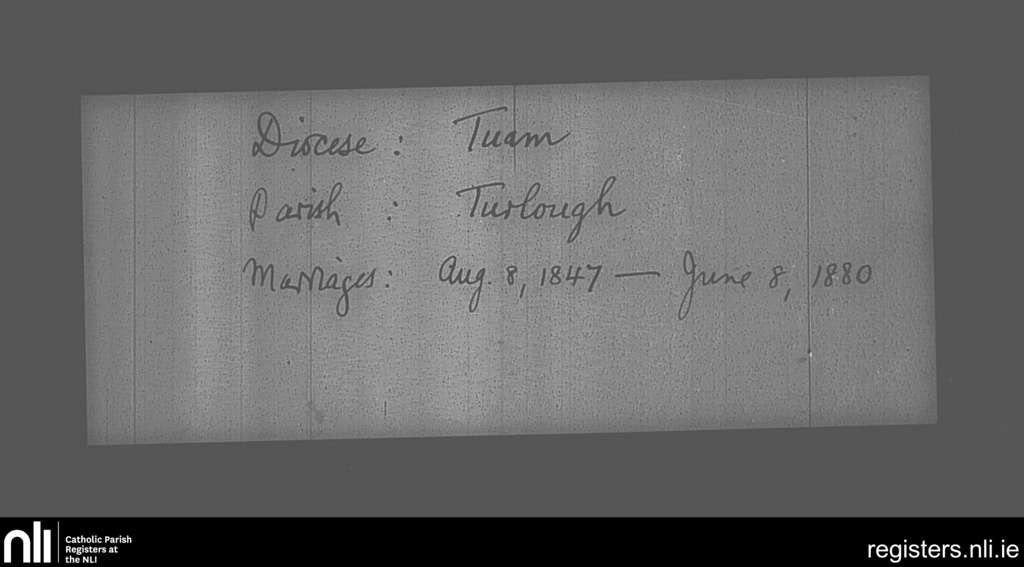 Diocese : Tuam
Parish : Turlough
Marriages: Aug. 8, 1847 — June 8, 1880
nli
Catholic Parish
Registers at
the NLI
registers.nli.ie